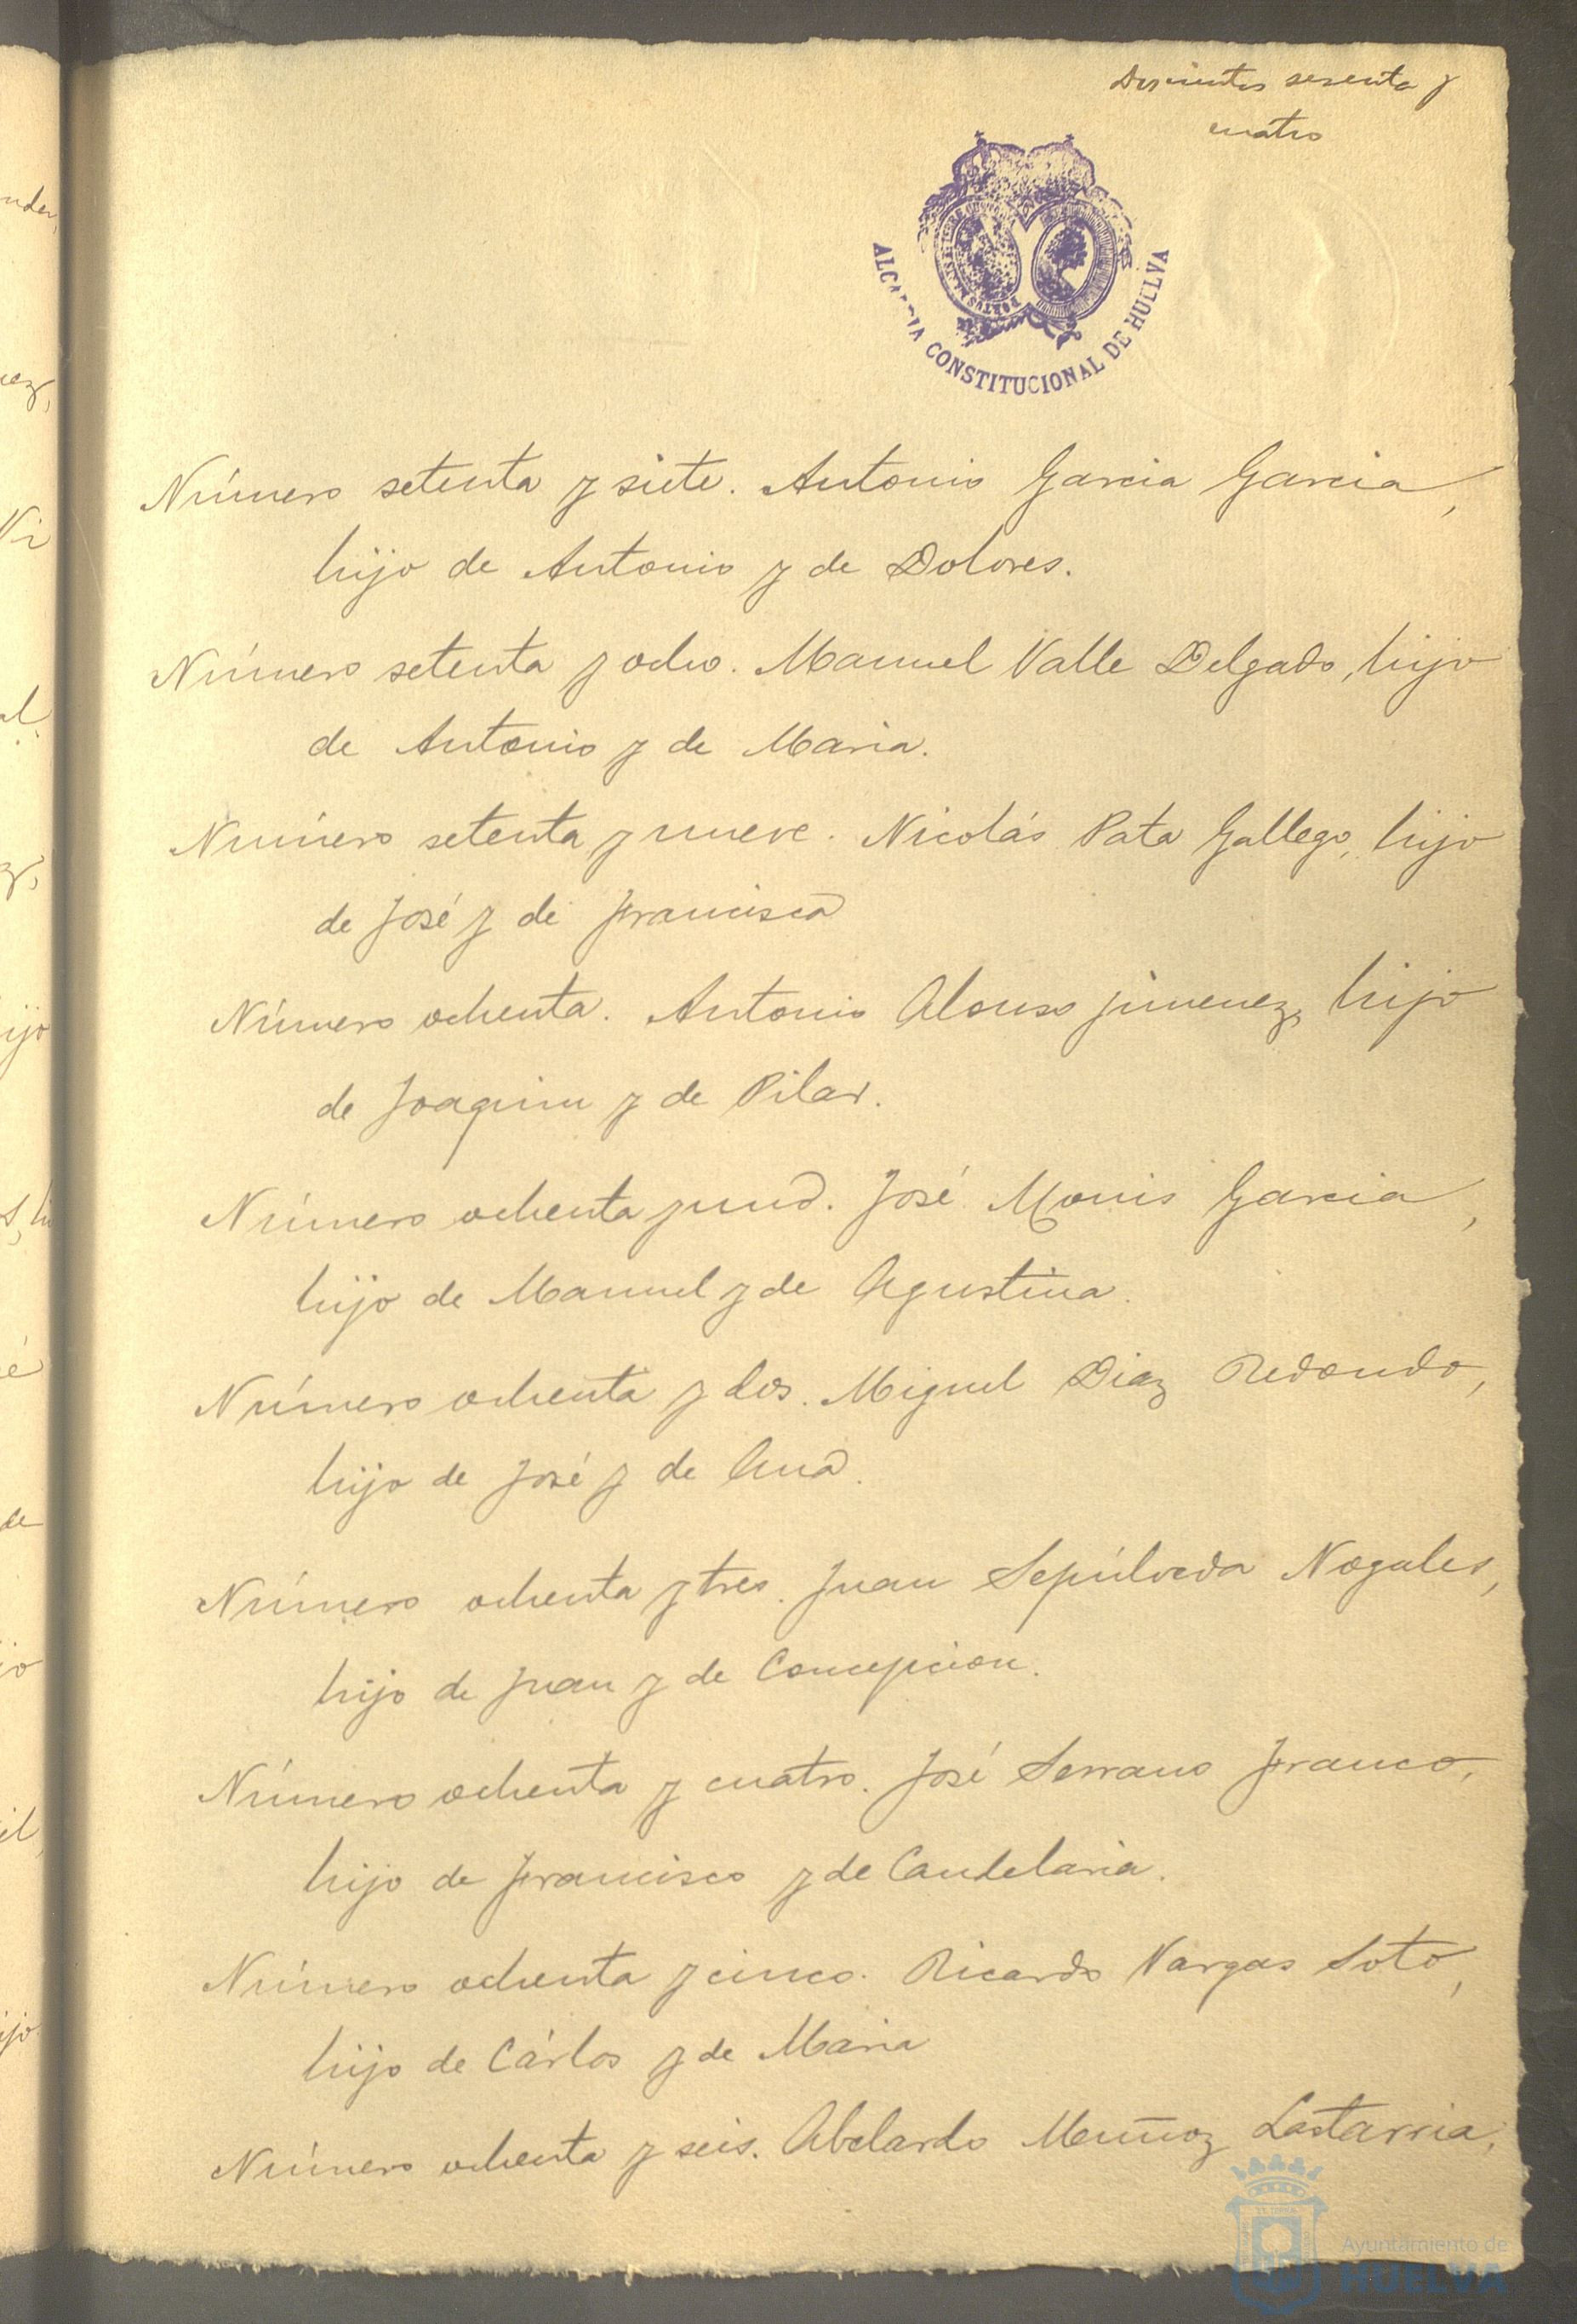 Doscientos sesenta y
cuatro
ALCALDIA CONSTITUCIONAL DE HUELVA
Número setenta y siete. Antonio Garcia Garcia,
hijo de Antonio y de Dolores.
Número setenta y ocho. Manuel Valle Delgado, hijo
de Antonio y de Maria.
Número setenta y nueve. Nicolás Pata Gallego, hijo
de José y de Francisca
Número ochenta. Antonio Alonso Jimenez, hijo
de Joaquin y de Pilar.
Número ochenta y uno. José Monis Garcia,
hijo de Manuel y de Agustina.
Número ochenta y dos. Miguel Diaz Redondo,
hijo de José y de Ana.
Número ochenta y tres. Juan Sepúlveda Nogales,
hijo de Juan y de Concepcion.
Número ochenta y cuatro. José Serrano Franco,
hijo de Francisco y de Candelaria.
Número ochenta y cinco. Ricardo Vargas Soto,
hijo de Cárlos y de Maria
Número ochenta y seis. Abelardo Muñoz Lastarria,
Ayuntamiento de
HUELVA